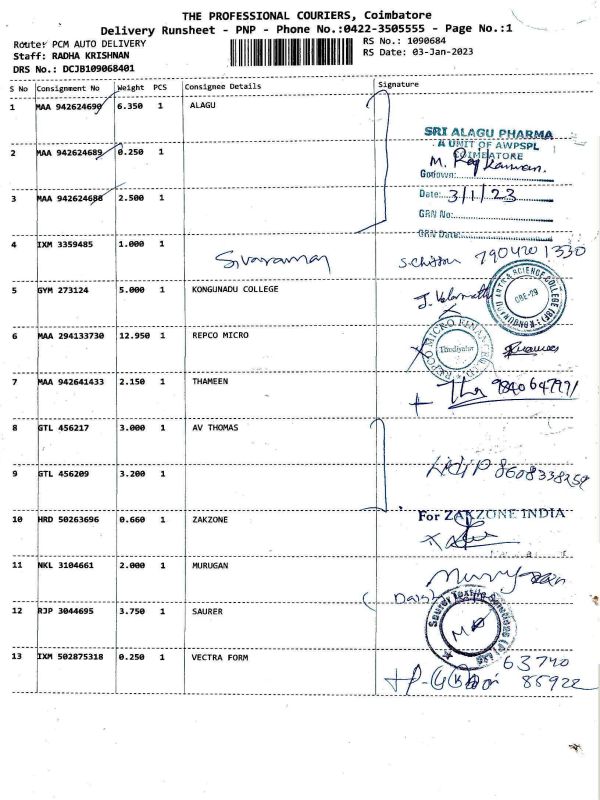 THE PROFESSIONAL COURIERS, Coimbatore
Delivery Runsheet - PNP - Phone No.:0422-3505555 - Page No.:1
Route: PCM AUTO DELIVERY
Staff: RADHA KRISHNAN
DRS No.: DCJB109068401
RS No.: 1090684
RS Date: 03-Jan-2023
S No Consignment No Weight PCS Consignee Details Signature
1 MAA 942624690 6.350 1 ALAGU
SRI ALAGU PHARMA
A UNIT OF AWPSPL
COIMBATORE
2 MAA 942624689 0.250 1
M.
Godown:
3 MAA 942624688 2.500 1
Date: 3/1/23
GRN No:
GRN Date:
4 IXM 3359485 1.000 1
Sivaraman 7904201330
5 GYM 273124 5.000 1 KONGUNADU COLLEGE
CBE-29
6 MAA 294133730 12.950 1 REPCO MICRO
7 MAA 942641433 2.150 1 THAMEEN
8 GTL 456217 3.000 1 AV THOMAS
9 GTL 456209 3.200 1
8608338252
10 HRD 50263696 0.660 1 ZAKZONE
For ZAKZONE INDIA
11 NKL 3104661 2.000 1 MURUGAN
12 RJP 3044695 3.750 1 SAURER
13 IXM 502875318 0.250 1 VECTRA FORM
63740
85922